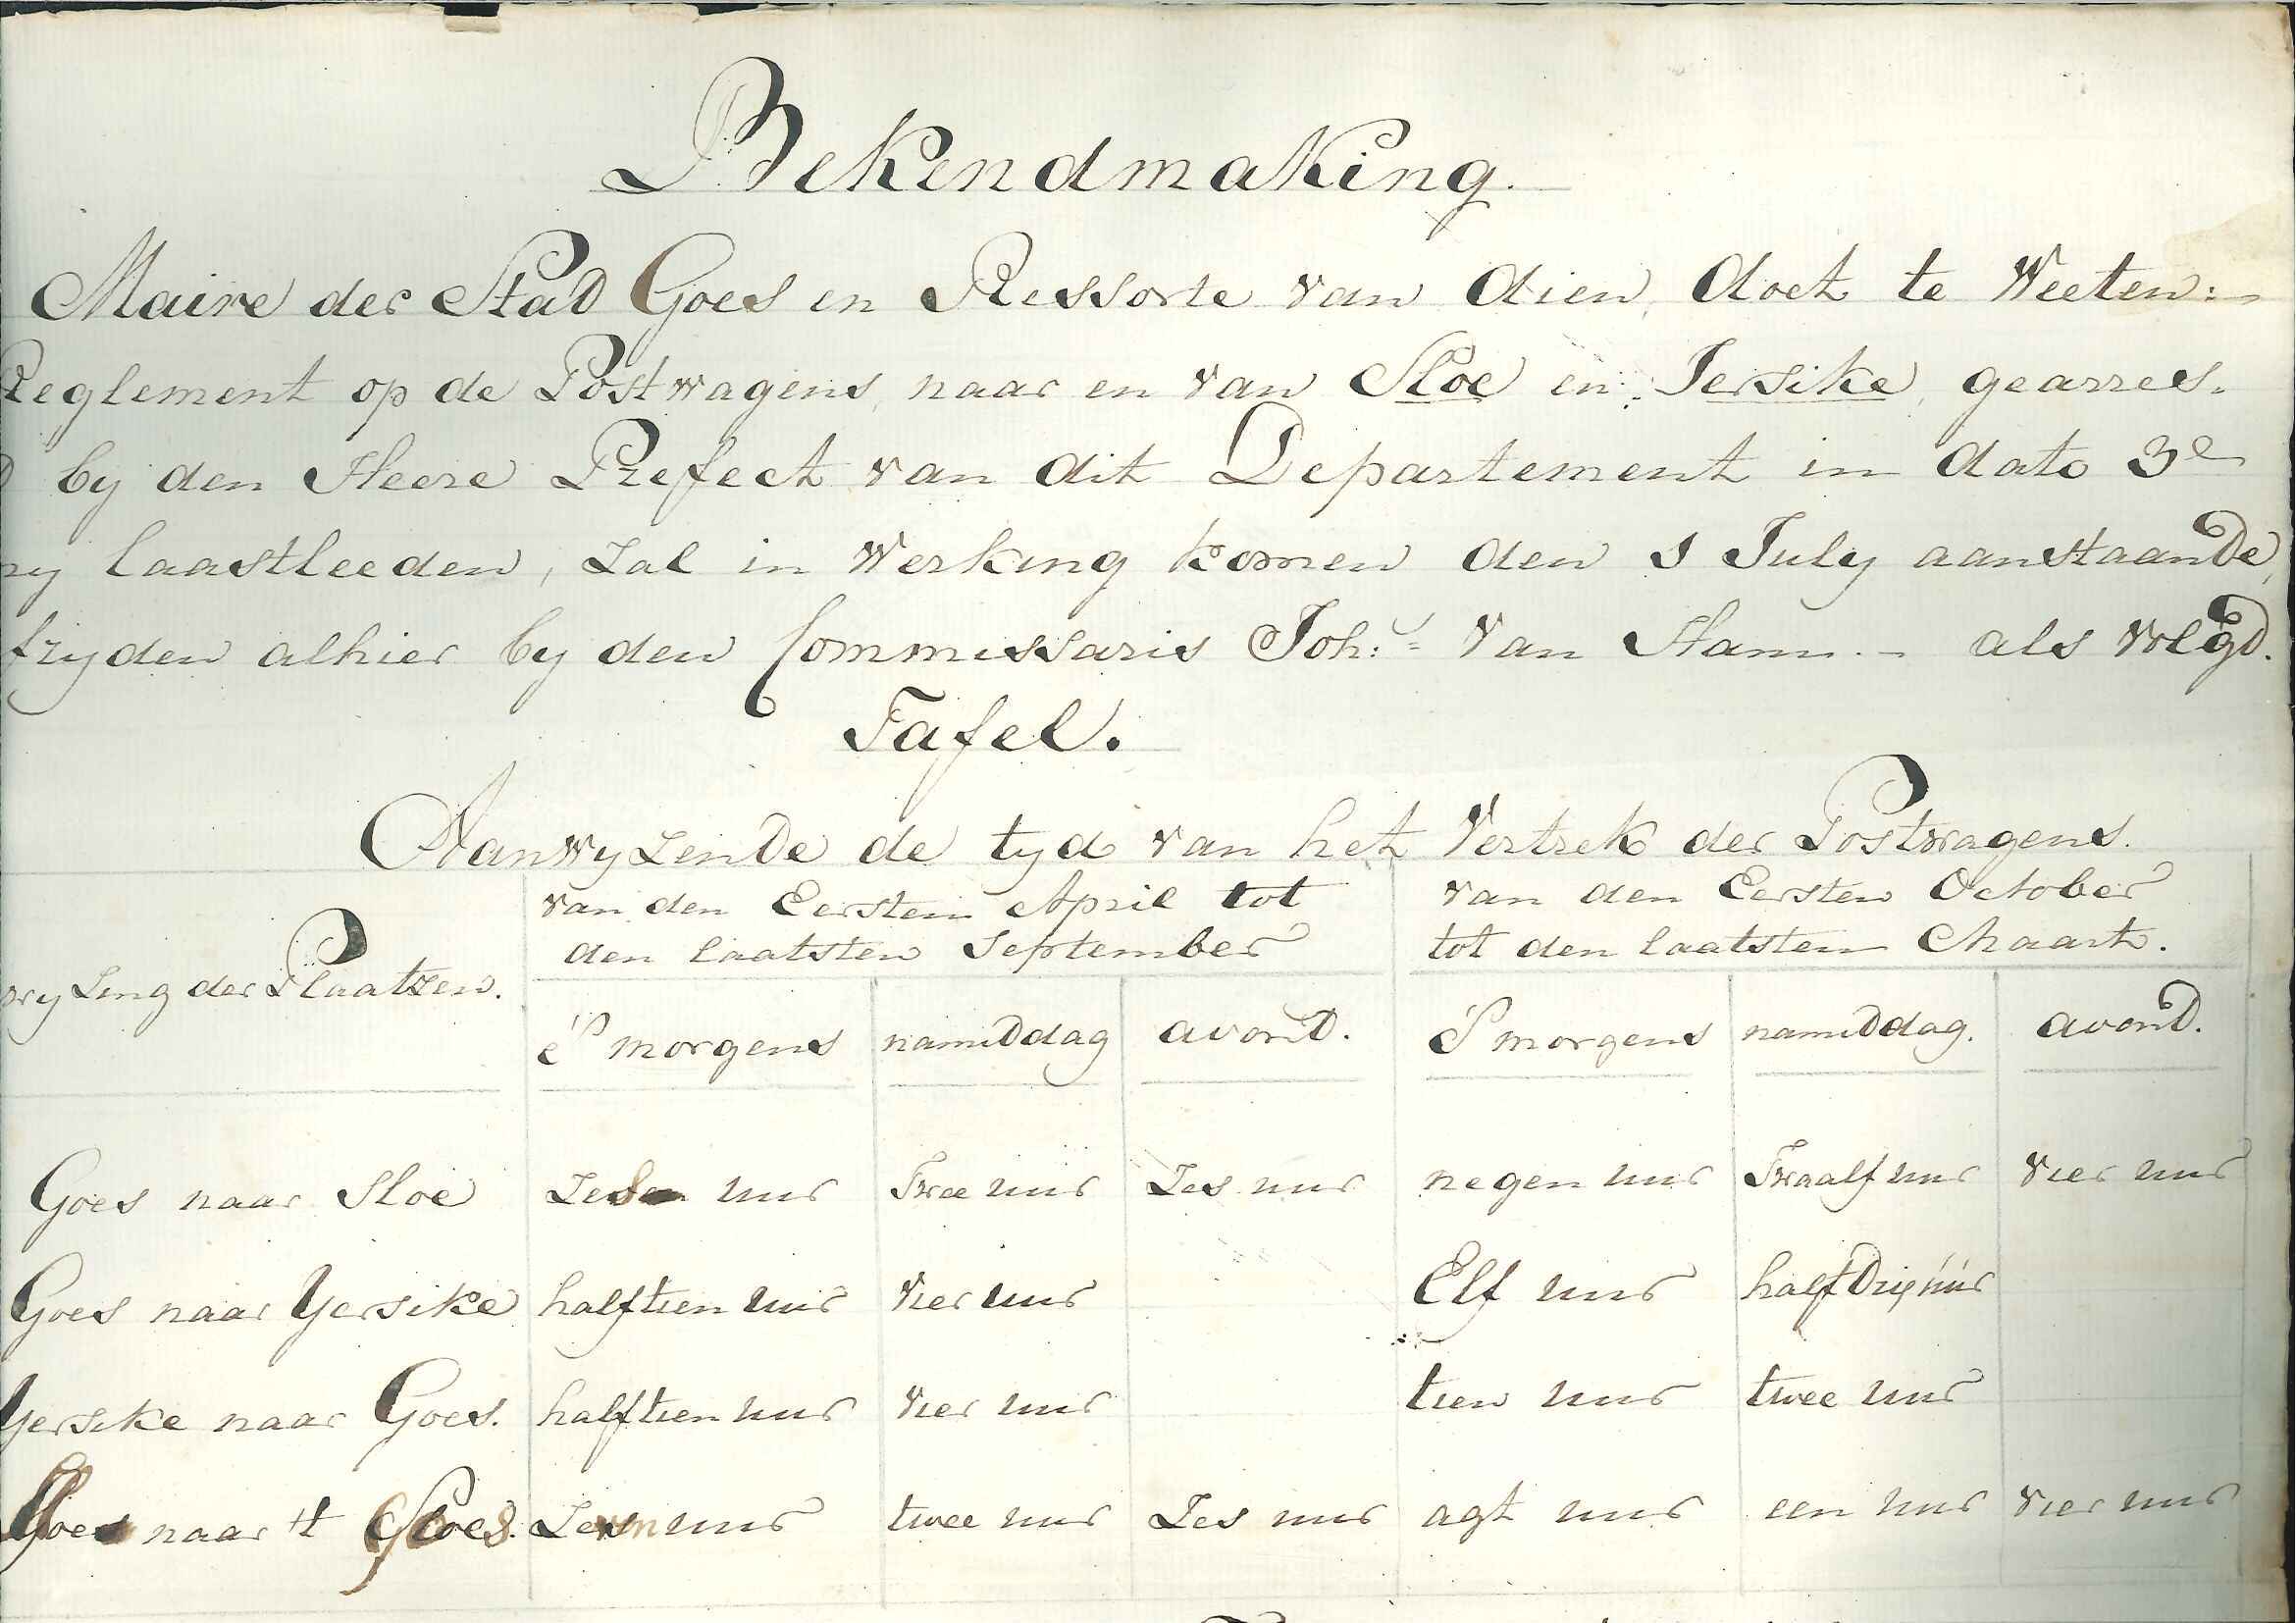 Bekendmaking.
Maire der Stad Goes en Ressorte van dien, doet te Weeten:
Reglement op de Postwagens, naar en van Sloe en Jersike, gearres-
D by den Heere Prefect van dit Departement in dato 3e
ny laastleeden, zal in werking komen den 1 July aanstaande,
fryden alhier by den Commissaris Joh:s Van Stam - als volgd.
Tafel.
Aanwyzende de tyd van het Vertrek der Postwagens.
van den Eersten April tot van den Eersten October
den laatsten September tot den laatsten Maart.
wyzing der Plaatzen.
S morgens namiddag avond. S morgens namiddag. avond.
Goes naar Sloe uur Twee uur Zes uur negen uur Twaalf uur vier uur
Goes naar Yersike half tien uur vier uur Elf uur half Drij uur
Yersike naar Goes. half tien uur vier uur tien uur twee uur
naar uur twee uur Zes uur agt uur een uur vier uur